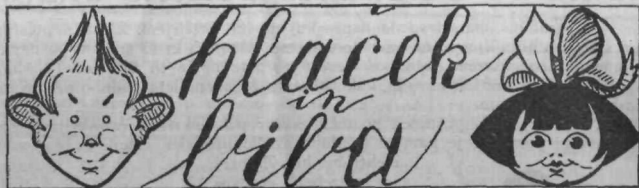 hlaček
in
biba